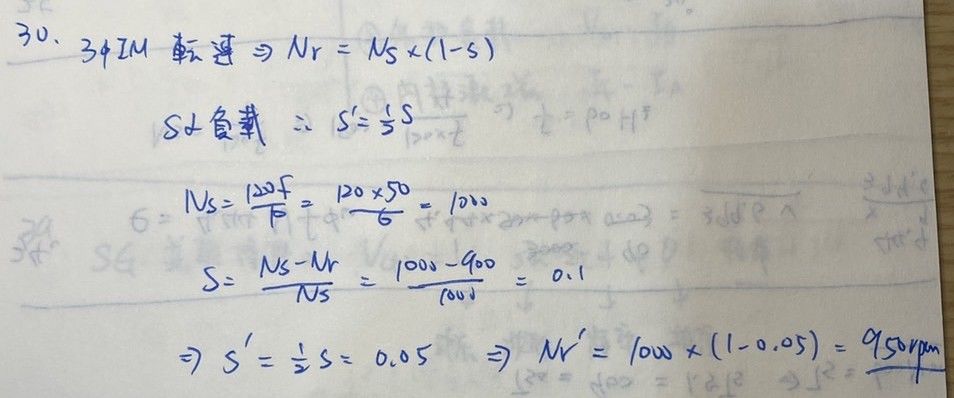 30. 3φIM 転速 ⇒ Nr = Ns × (1-s)
S α 負載 ∴ S' = 1/2 S
Ns = 120f/P = 120×50/6 = 1000
S = Ns-Nr/Ns = 1000-900/1000 = 0.1
⇒ S' = 1/2 S = 0.05 ⇒ Nr' = 1000 × (1-0.05) = 950rpm